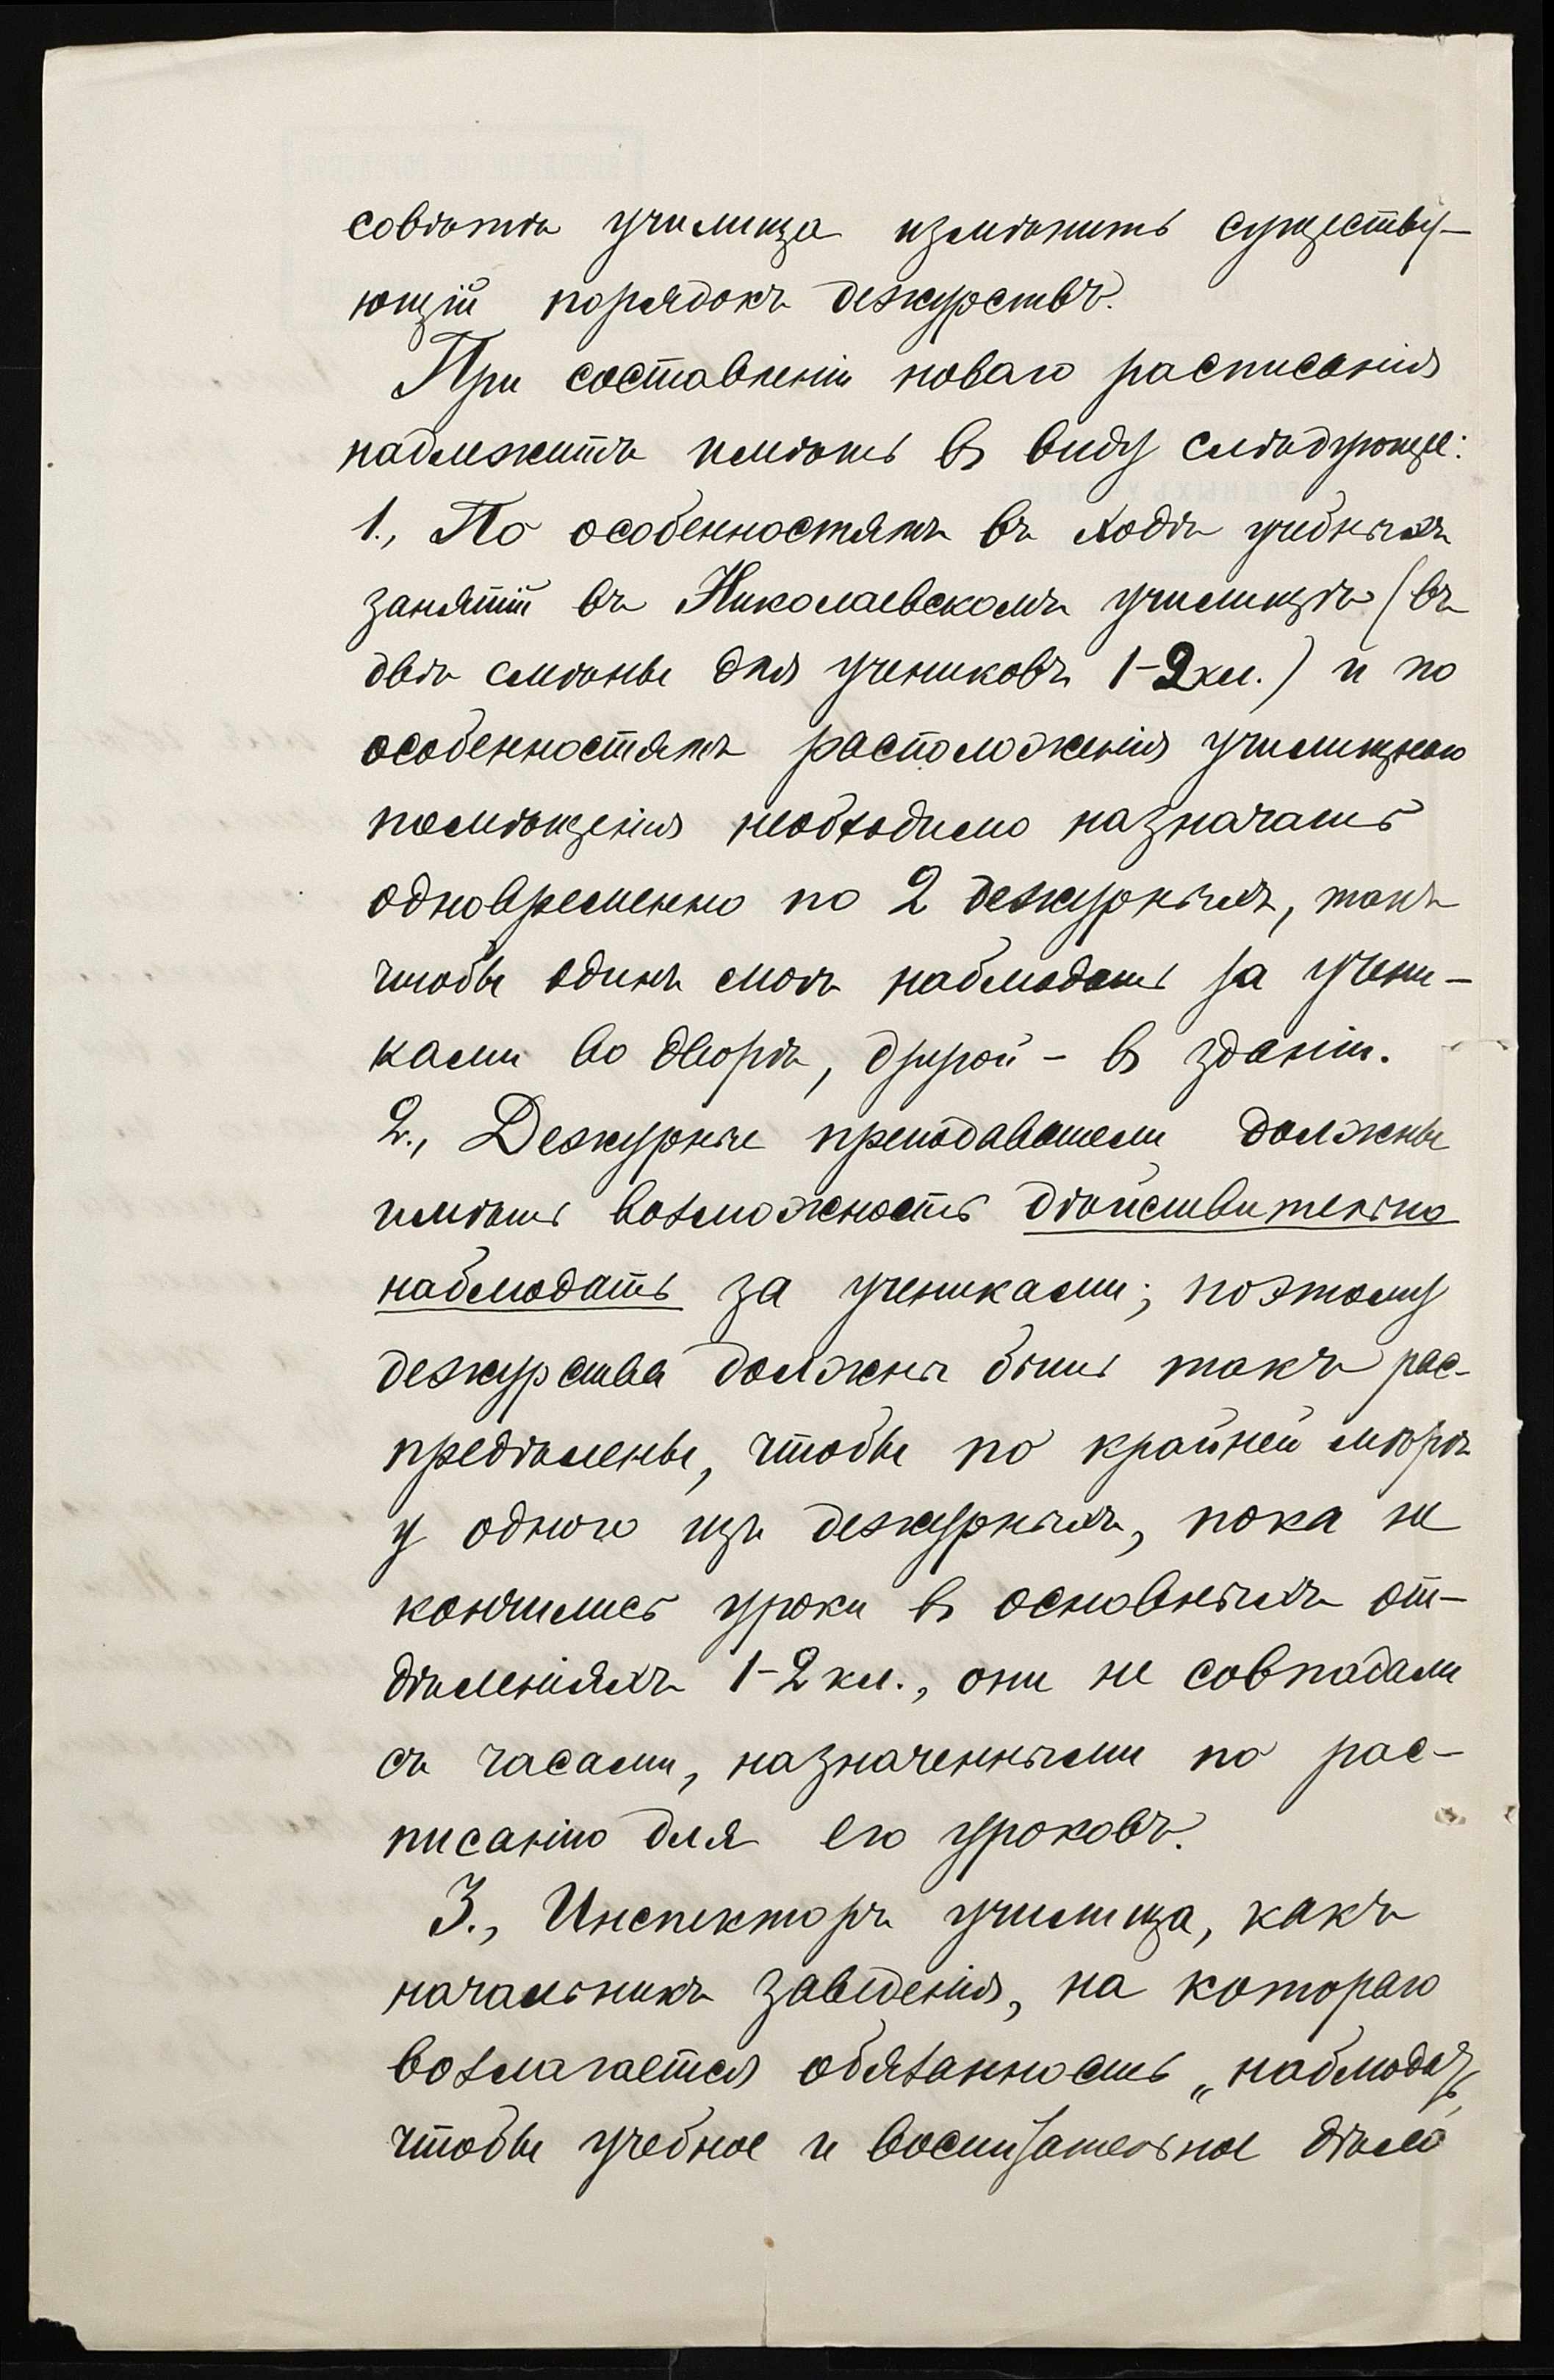 совѣтѣ училища измѣнить существу-
ющій порядокъ дежурствъ.
При составленіи новаго расписанія
надлежитъ имѣть въ виду слѣдующее:
1., По особенностямъ въ ходѣ учебныхъ
занятій въ Николаевскомъ училищѣ (въ
двѣ смѣны для учениковъ 1-2 кл.) и по
особенностямъ расположенія училищнаго
помѣщенія необходимо назначать
одновременно по 2 дежурныхъ, такъ
чтобы одинъ могъ наблюдать за учени-
ками во дворѣ, другой - въ зданіи.
2., Дежурные преподаватели должны
имѣть возможность дѣйствительно
наблюдать за учениками; поэтому
дежурства должны быть такъ рас-
предѣлены, чтобы по крайней мѣрѣ
у одного изъ дежурныхъ, пока не
кончились уроки въ основныхъ от-
дѣленіяхъ 1-2 кл., они не совпадали
съ часами, назначенными по рас-
писанію для его уроковъ.
3., Инспекторъ училища, какъ
начальникъ заведенія, на котораго
возлагается обязанность „наблюдать,
чтобы учебное и воспитательное дѣло